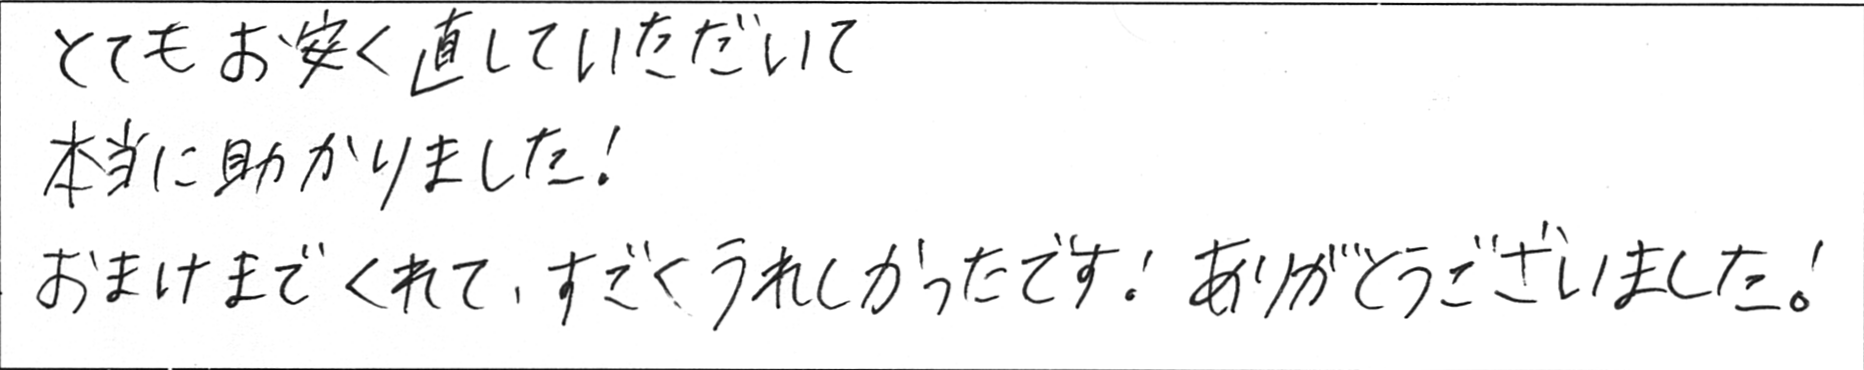 とてもお安く直していただいて
本当に助かりました!
おまけまでくれて、すごくうれしかったです!ありがとうございました!